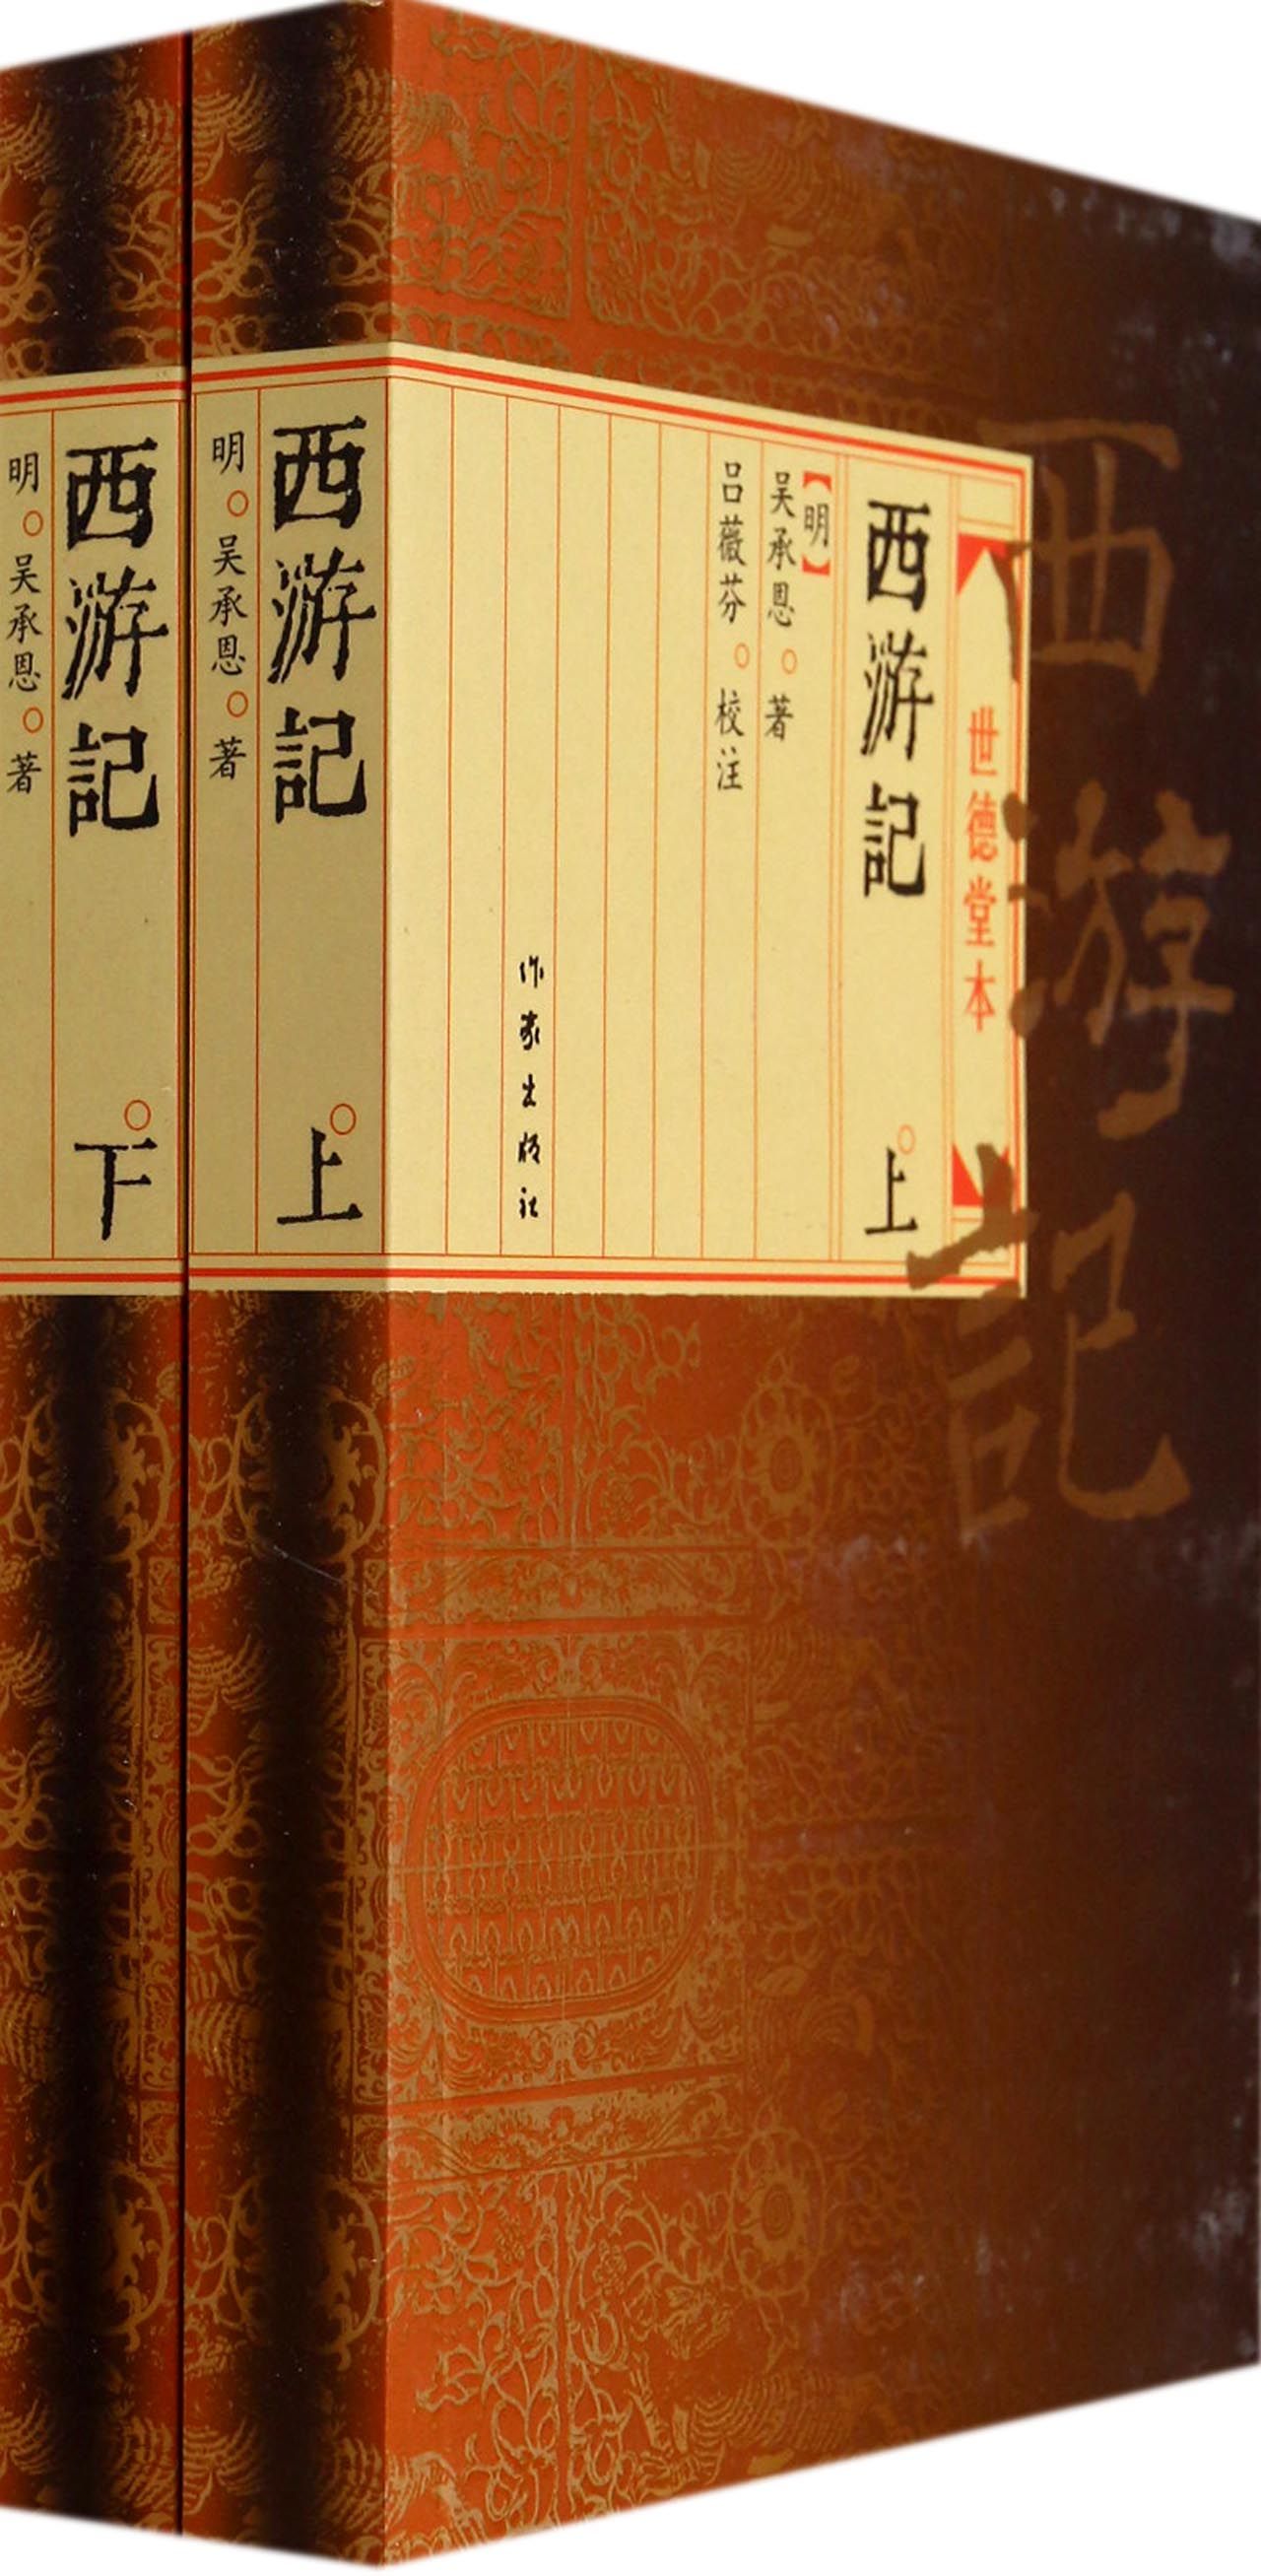 西游記
世德堂本
西游記 上
【明】
吴承恩 著
吕薇芬 校注
作家出版社
西游記 上
明 吴承恩 著
西游記 下
明 吴承恩 著